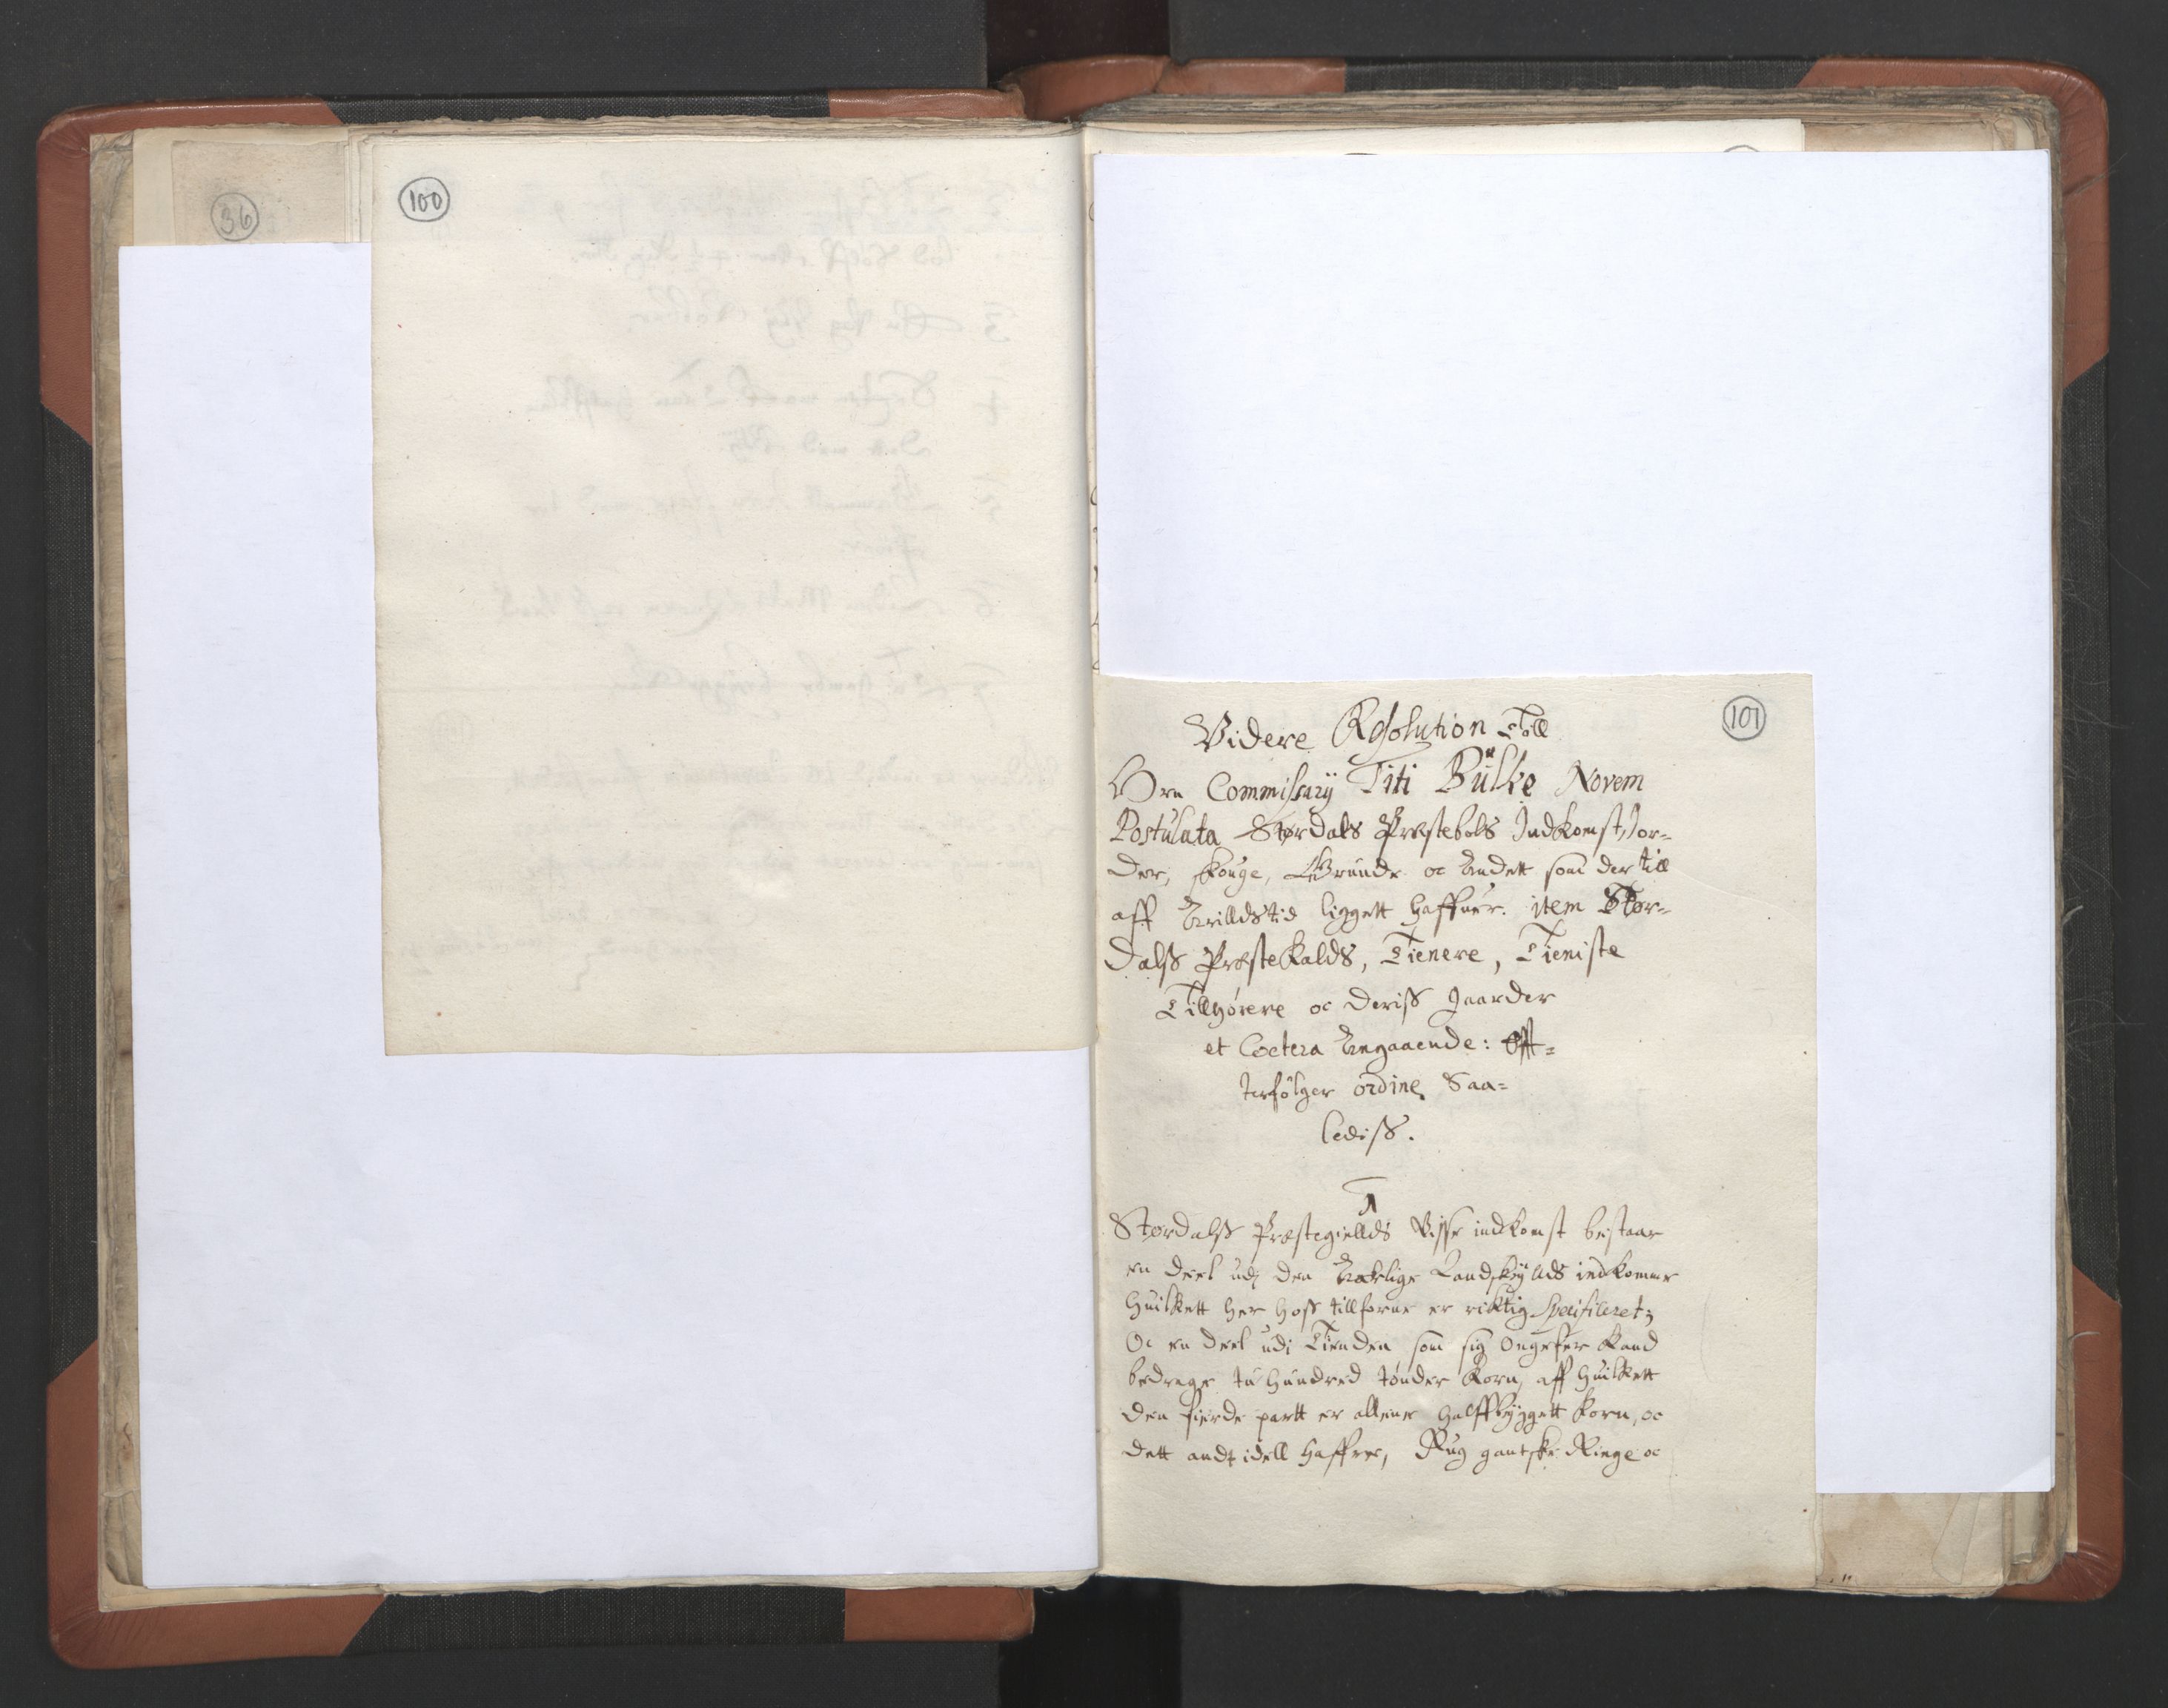 36
100
101
Videre Resolution Till
Hrn Commissarij Titi Bülke Novem
Postulata Størdals Præstebols Indkomst, Jor=
der, skouge, Grunde oc Andett som der till
aff Arilldstid liggett haffuer. item Stør=
dalß Præstekalds, Tienere, Tieniste
Tillhörere oc deriß Gaarder
et Coetera Angaaende: Eft=
terfölger ordine Saa=
lediß.
1
Størdalß Præstegiellds Visse indkomst bestaar
en deel udj den Aarlige Landskylds indkomme
huilkett her hoss tillforne er riktig Specificeret;
Oc en deel udi Tienden som sig Ongefer kand
bedrage tu hundred tønder Korn, aff huilkett
den fierde partt er allene halffbyggett korn, oc
dett andt idell Haffre, Rug gantske Ringe oc